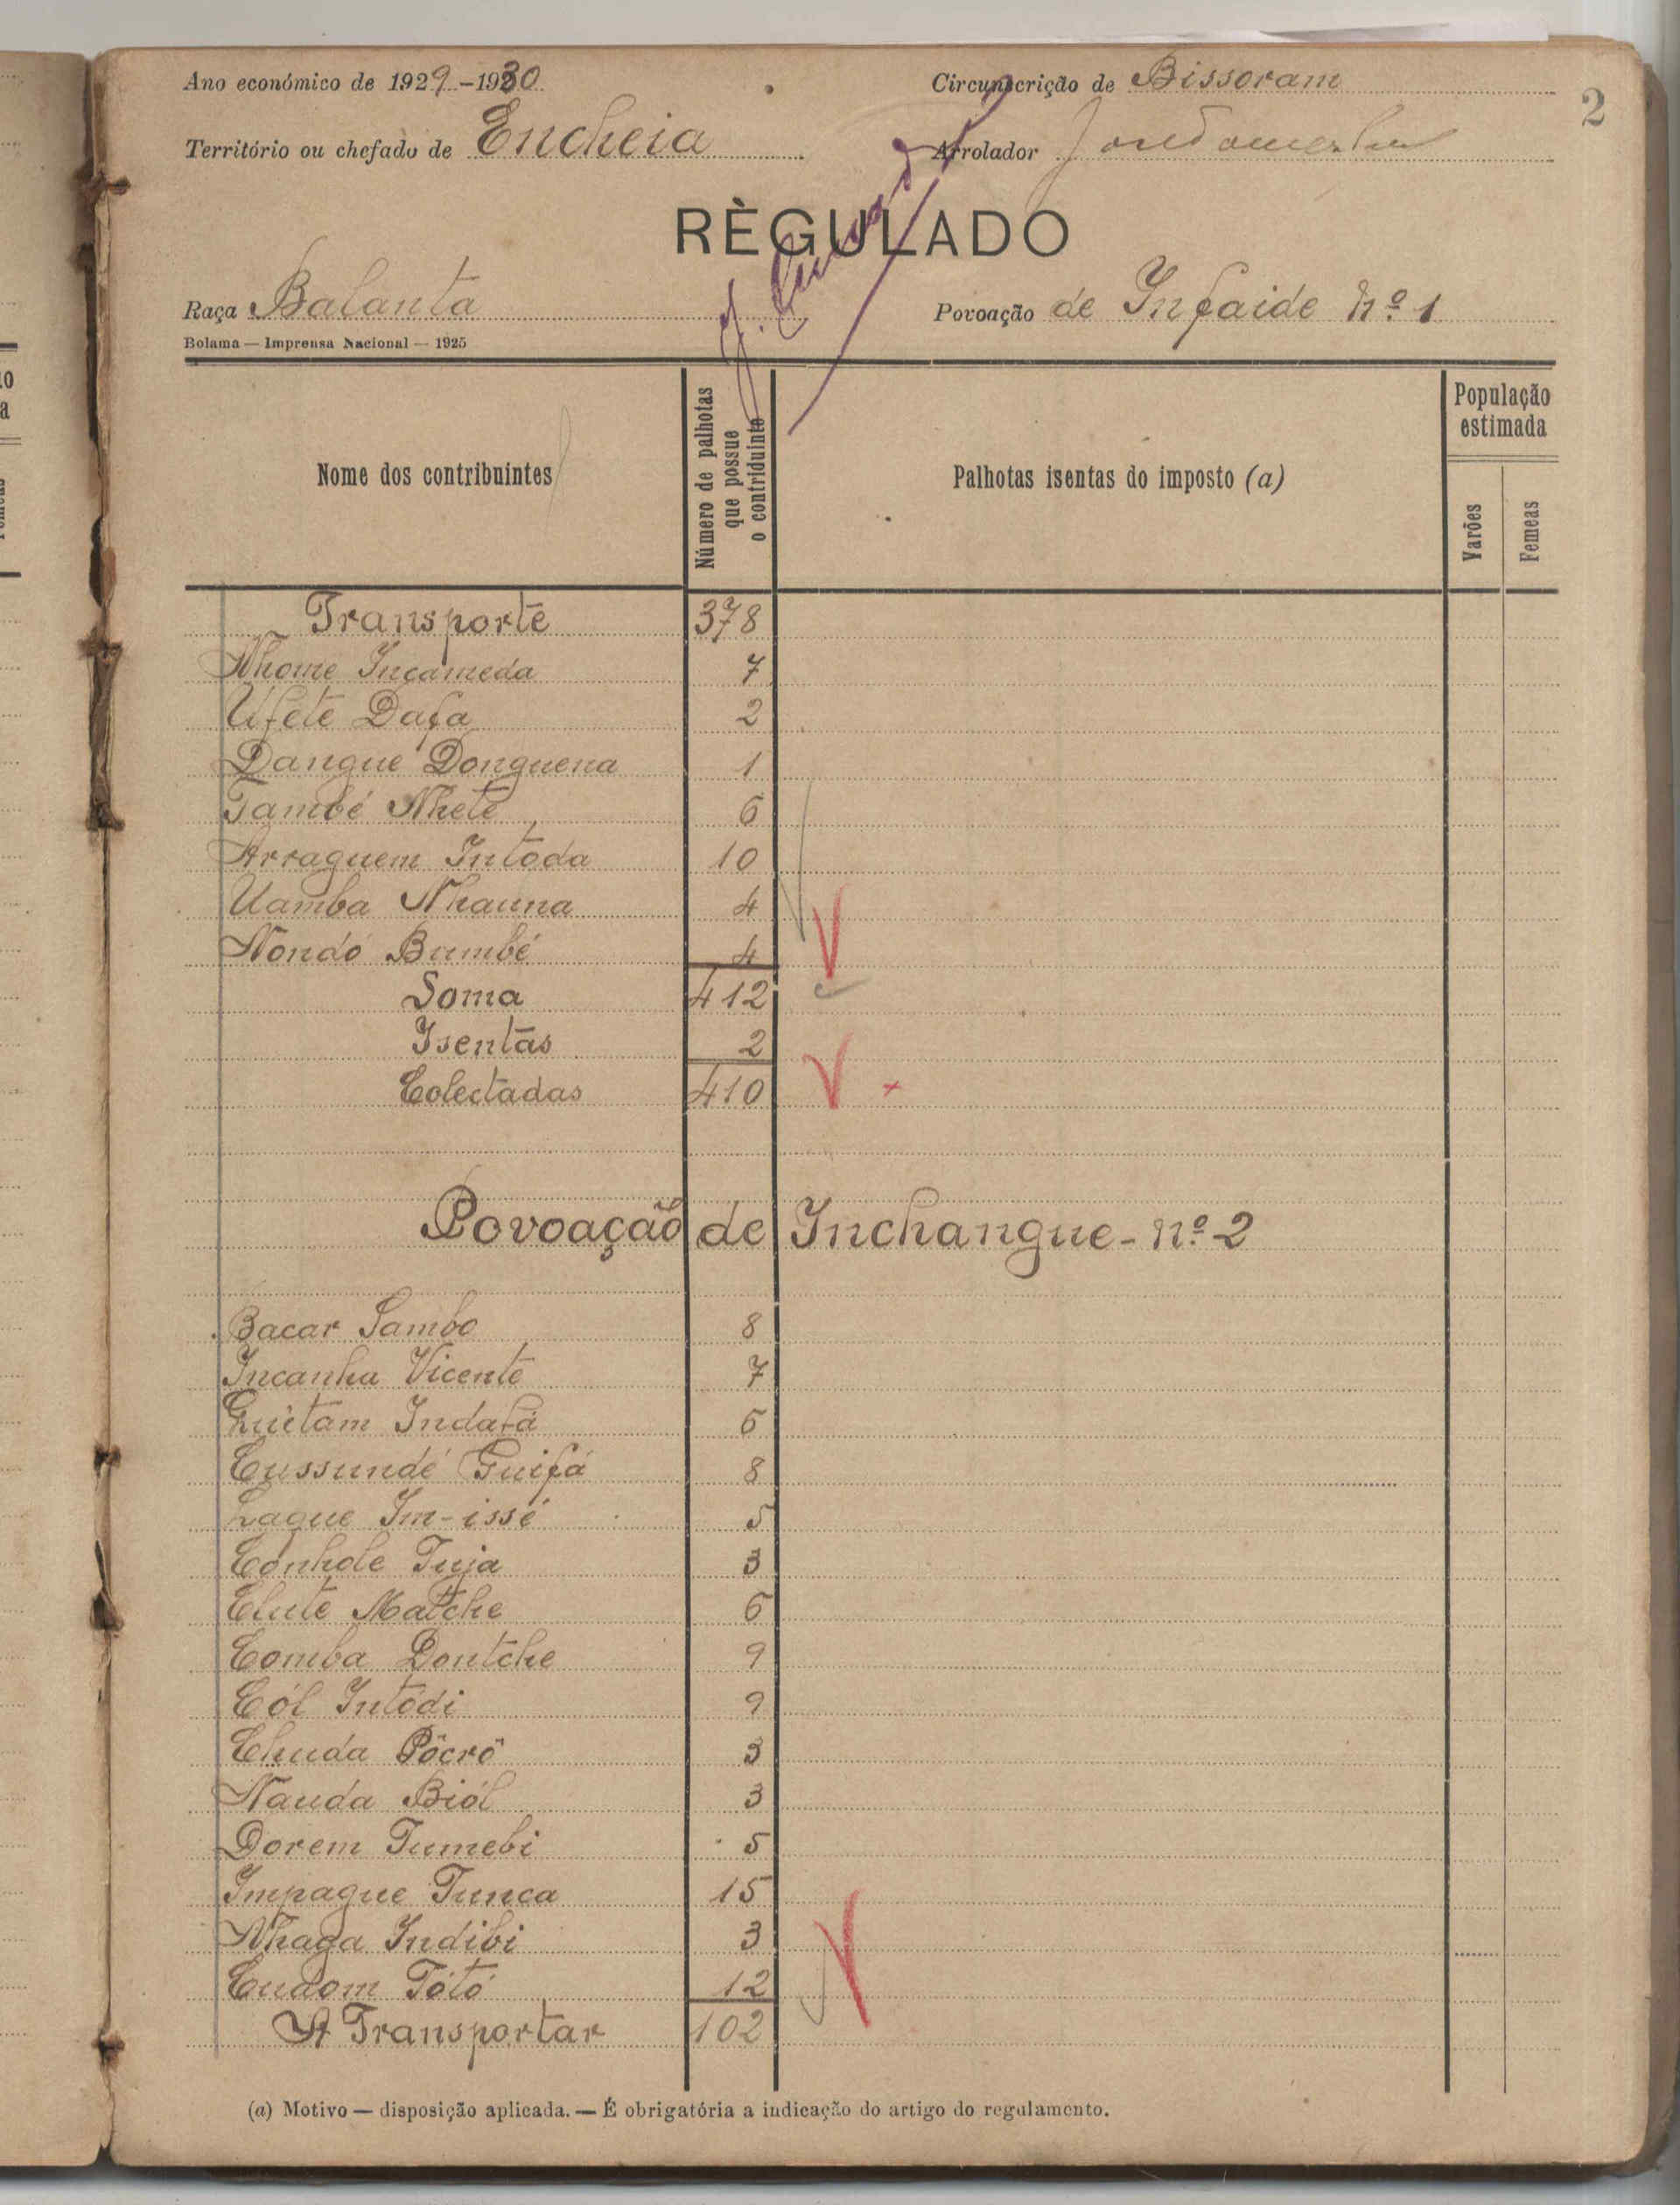 Ano económico de 1929-1930
Circunscrição de Bissoram
2
Território ou chefado de Encheia
Arrolador
RÈGULADO
Raça Balanta
Povoação de Infaide Nº 1
Bolama — Imprensa Nacional — 1925
Nome dos contribuintes
Número de palhotas
que possue
o contriduinte
Palhotas isentas do imposto (a)
População
estimada
Varões
Femeas
Transporte 378
Nhome Incameda 7
Ufete Dafa 2
Dangue Donguena 1
També Nhete 6
Arraguem Intoda 10
Uamba Nhauna 4
Nondó Bumbé 4
Soma 412
Isentas 2
Colectadas 410
Povoação de Inchangue - nº 2
Bacar Sambo 8
Incanha Vicente 7
Quetam Indafá 6
Cussundé Guifá 8
Laque Im-issé 5
Conhole Tuja 3
Clute Matche 6
Comba Dontche 9
Cól Intódi 9
Chuda Pôcrô 3
Nauda Biól 3
Dorem Tumebi 5
Impague Tunca 15
Nhaga Indibi 3
Cudom Tótó 12
A Transportar 102
(a) Motivo — disposição aplicada. — É obrigatória a indicação do artigo do regulamento.